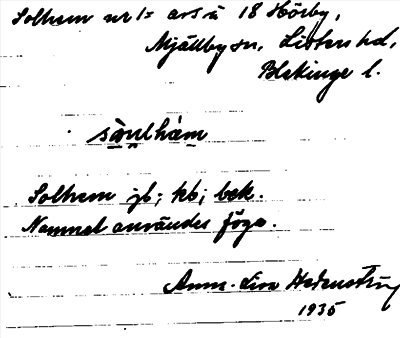 Solhem nr 1= avs å 18 Hörby,
Mjällby sn, Listers hd,
Blekinge l.
sờulhàm
Solhem jb; kb; bek.
Namnet användes föga.
Anna-Lisa Hedenström
1935